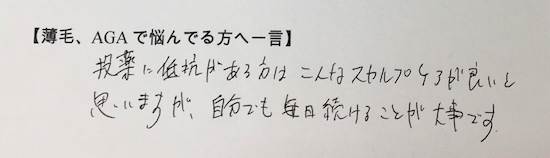 【薄毛、AGAで悩んでる方へ一言】
投薬に低抗がある方はこんなスカルプケアが良いと
思いますが、自分でも毎日続けることが大事です